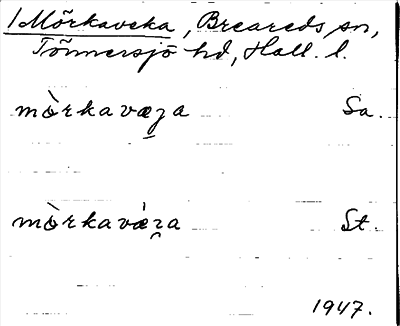 1 Mörkaveka, Breareds sn,
Tönnersjö hd, Hall. l.
mòrkavæʒa Sa.
mòrkavǽʒa St.
1947.